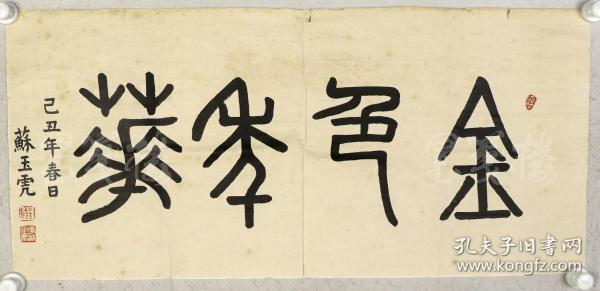 金色年華
己丑年春日
蘇玉虎
孔夫子旧书网
www.kongfz.com